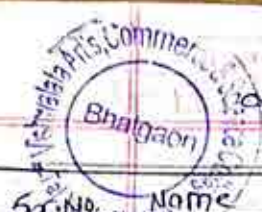 Vishwalata Arts, Commerce
Bhatgaon
Sr. No. Name